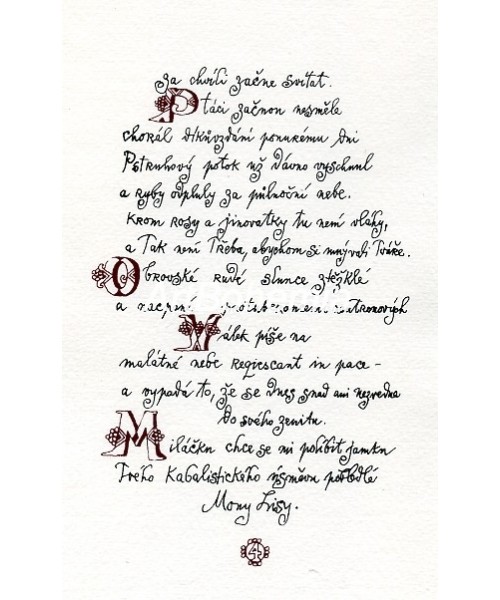 za chvíli začne svítat.
Ptáci začnou nesměle
chorál díkůvzdání ponurému dni
Pstruhový potok už dávno vyschnul
a ryby odpluly za půlnoční nebe.
Krom rosy a jinovatky tu není vláhy,
a Tak není Třeba, abychom si mývali Tváře.
Obrovské rudé slunce ztěžklé
a
Válek píše na
malátné nebe Reqiescant in pace –
a vypadá to, že se dnes snad ani nezvedne
do svého zenitu.
Miláčku chce se mi políbit jamku
Tvého Kabalistického úsměvu
Mony Lisy.
4